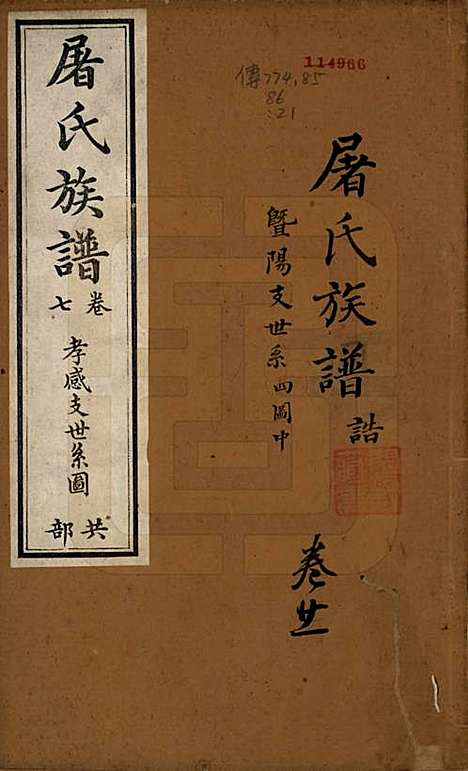 114966
傳774,85
86
:21
屠氏族譜 誥
暨陽支世系四圖中
卷廿一
屠氏族譜
卷七
孝感支世系圖
共部